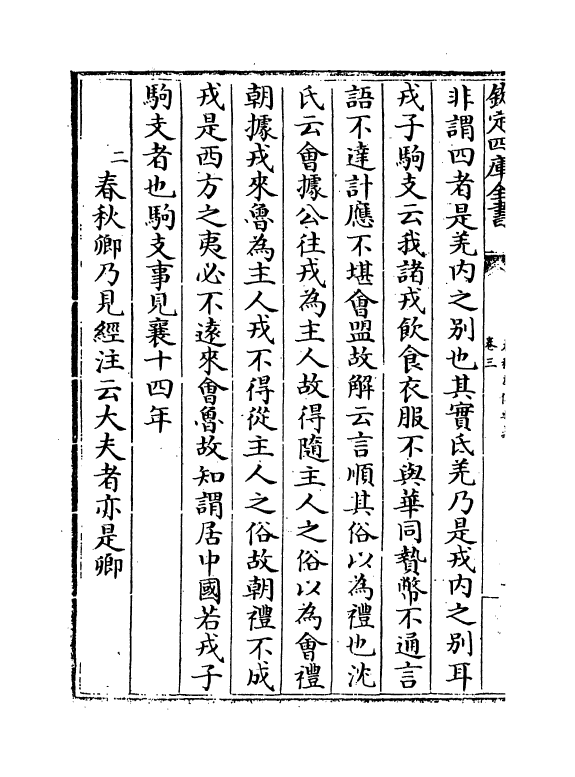 欽定四庫全書
卷三
非謂四者是羌内之别也其實氐羌乃是戎内之别耳
戎子駒支云我諸戎飲食衣服不與華同贄幣不通言
語不達計應不堪會盟故解云言順其俗以為禮也沈
氏云會據公往戎為主人故得隨主人之俗以為會禮
朝據戎來魯為主人戎不得從主人之俗故朝禮不成
戎是西方之夷必不遠來會魯故知謂居中國若戎子
駒支者也駒支事見襄十四年
二春秋卿乃見經注云大夫者亦是卿